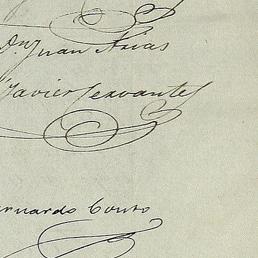 Dn Juan Arias
Javier Cervantes
ernardo Couto